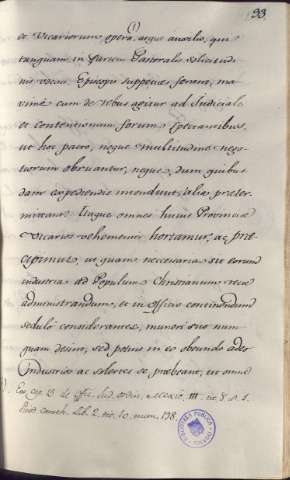 93.
et Vicariorum opera, atque auxilio, qui
tanquam in partem Pastoralis solicitudi
nis vocati Episcopi suppetias ferant, ma
ximè cum de rebus agitur ad Judiciale
et contentiosum forum spectantibus,
ut hoc pacto, neque multitudine nego
tiorum obruantur, neque, dum quibus
dam expediendis incumbunt, alia praeter
mittant. Itaque omnes huius Provinciae
Vicarios vehementer hortamur, ac prae
cipimus, ut quam necessaria sit eorum
industria ad Populum Christianum recte
administrandum, et in officio continendum
sedulo considerantes, muneri suo num
quam desint, sed potius in eo obeundo adeo
Industrios ac solertes se praebeant, ut omni
lib. 2. tit. 10. num. 138.
BIBLIOTECA PUBLICA
TOLEDO